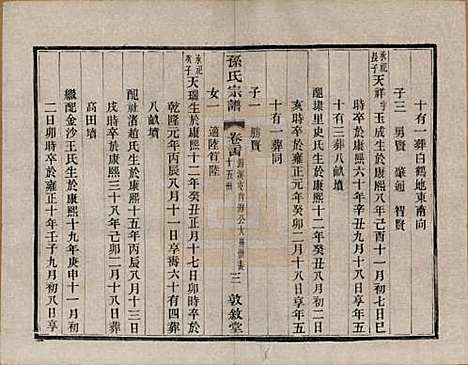 十有一葬白鶴地東南向
子三 勇賢 肇通 智賢
承祀長子天祥字玉成生於康熙八年己酉十一月初七日已
時卒於康熙六十年辛丑九月十八日卯時享年五
十有三葬八畝墳
配埭里史氏生於康熙十二年癸丑八月初八日
亥時卒於雍正元年癸卯二月十八日辰時享年五
十有一葬同
子一 勝賢
孫氏宗譜
卷
十五世
三 敦敘堂
女一 適陸笪陸
承祀次子天瑞生於康熙十二年癸丑正月十七日卯時卒於
乾隆元年丙辰八月十一日享壽六十有四葬
八畝墳
配社渚趙氏生於康熙十五年丙辰八月十六日
戌時卒於康熙三十八年己卯二月十八日葬
高田墳
繼配金沙王氏生於康熙十九年庚申十一月初
二日卯時卒於雍正十年壬子九月初八日享